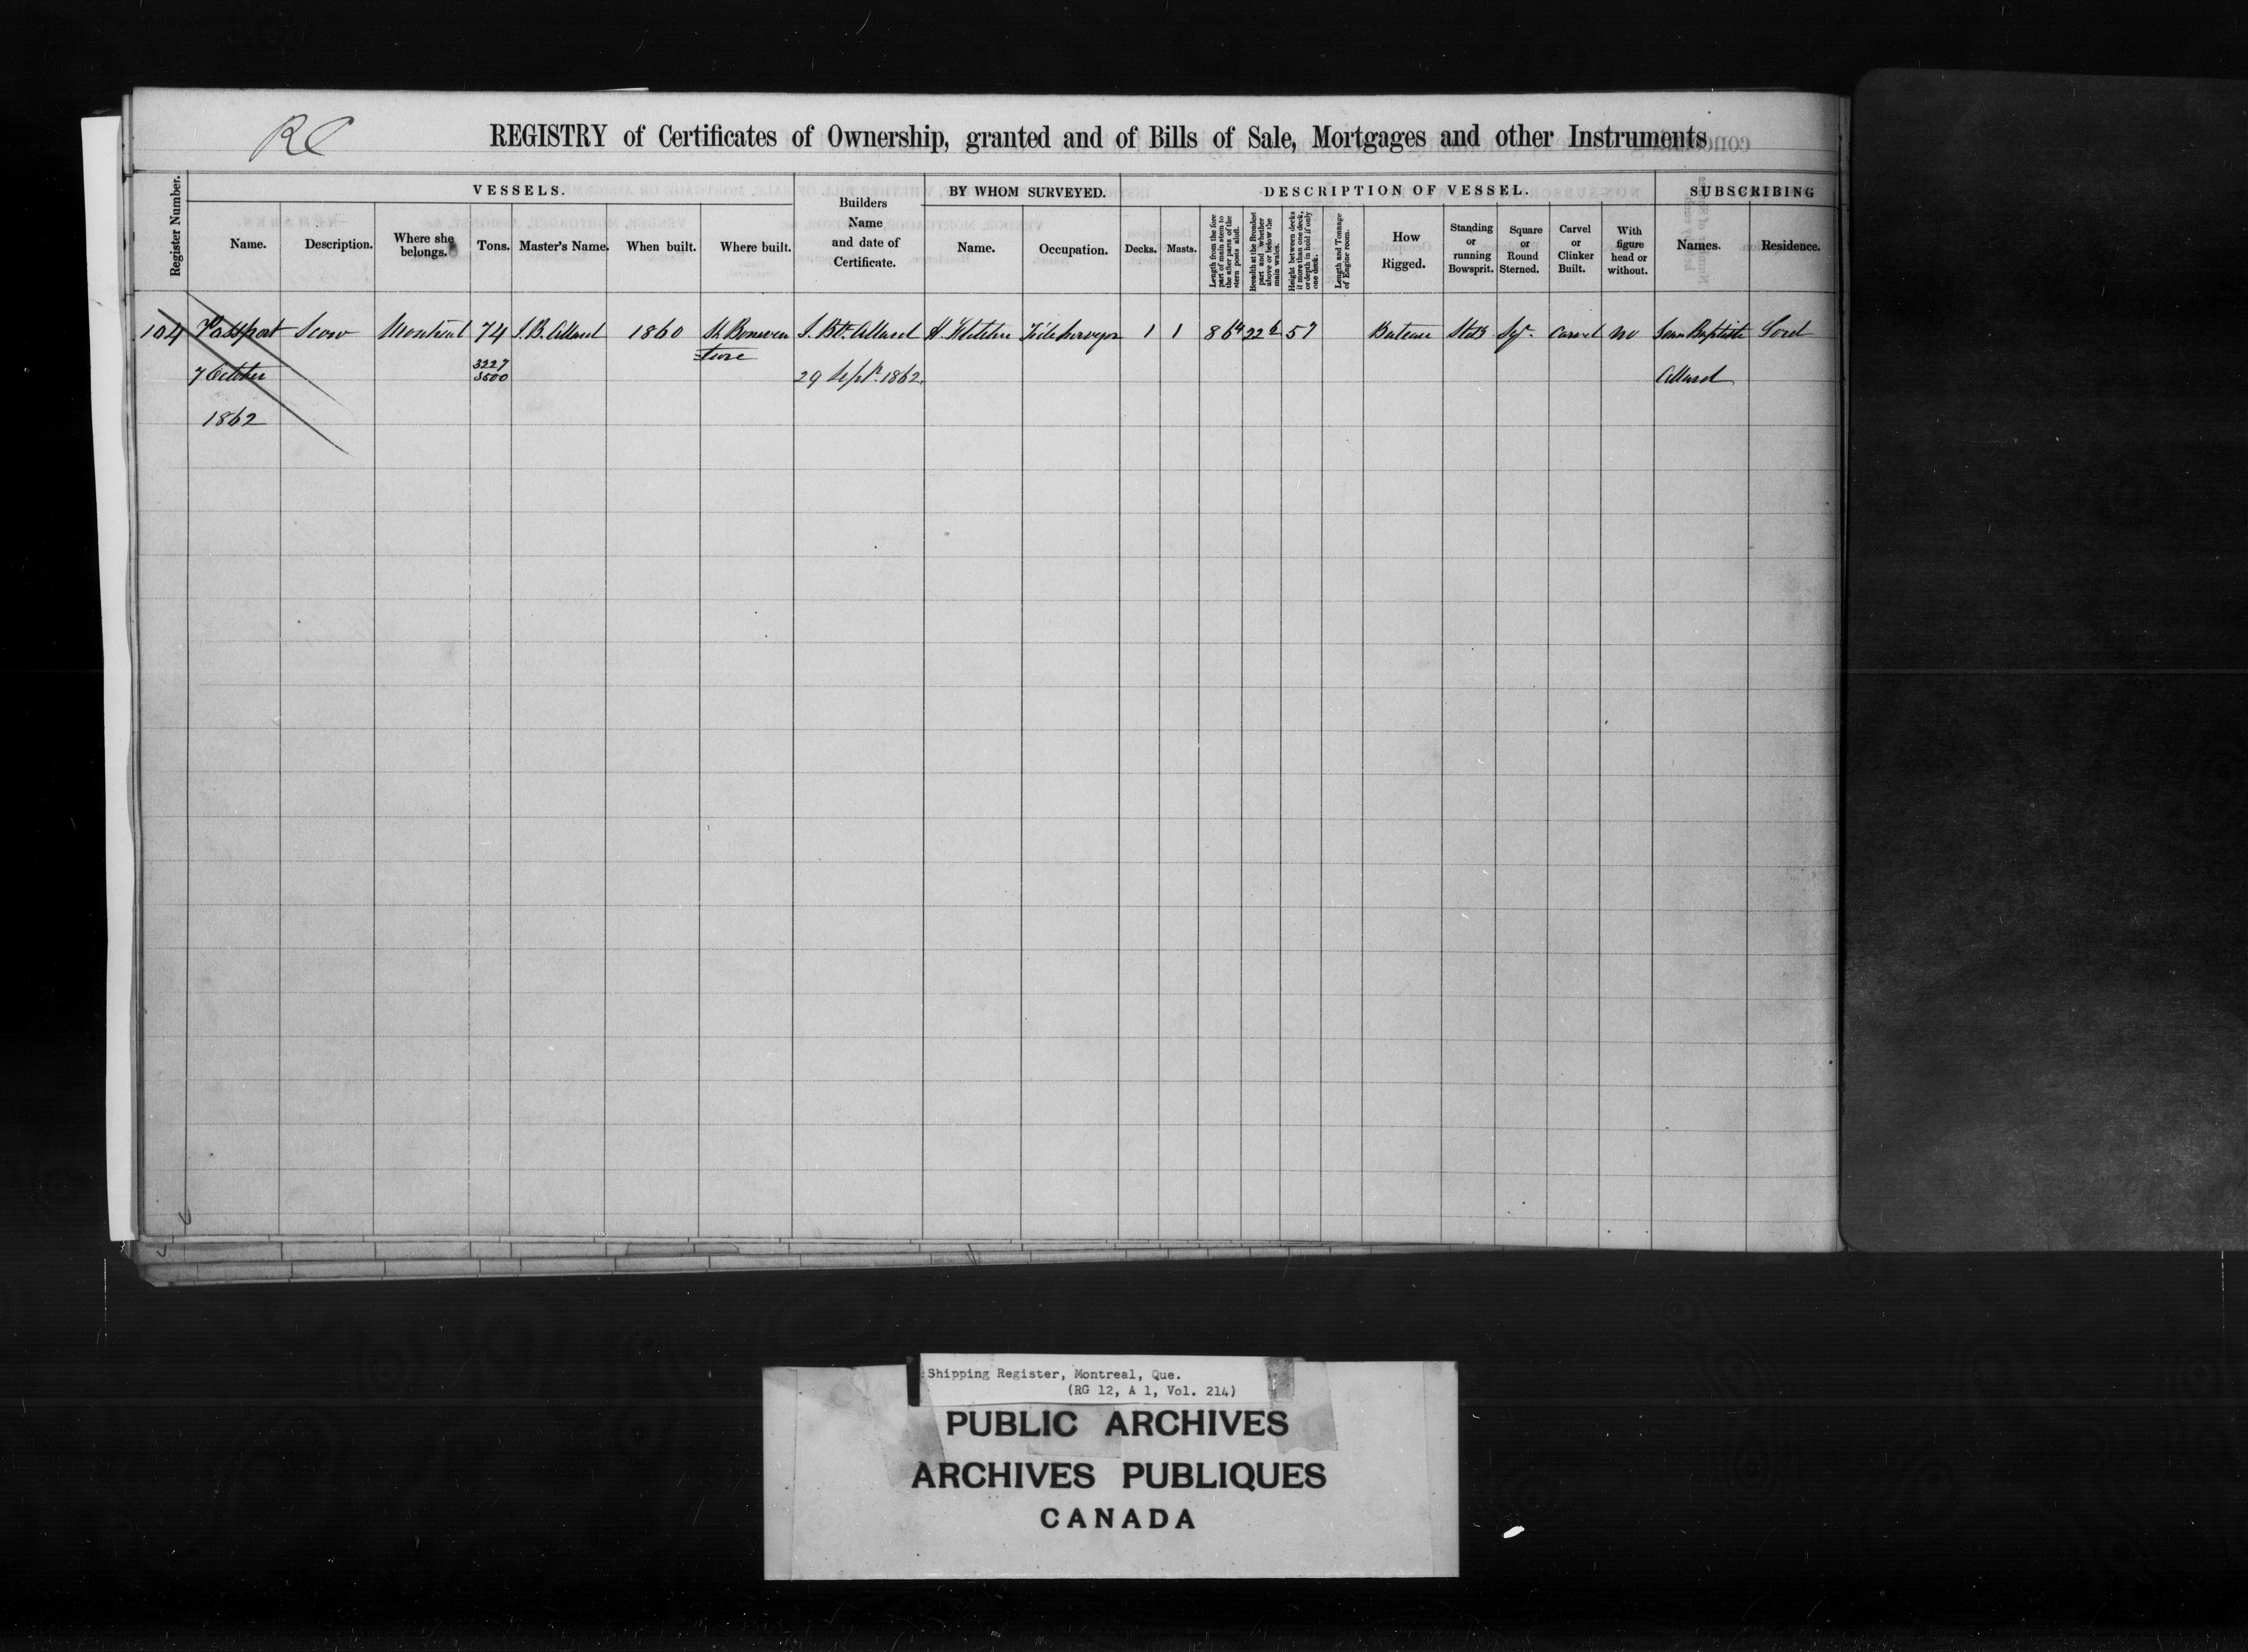 RC
REGISTRY of Certificates of Ownership, granted and of Bills of Sale, Mortgages and other Instruments
Register Number.
VESSELS.
Name.
Description.
Where she belongs.
Tons.
Master's Name.
When built.
Where built.
Builders Name and date of Certificate.
BY WHOM SURVEYED.
Name.
Occupation.
DESCRIPTION OF VESSEL.
Decks.
Masts.
Length from the fore part of main stem to the after parts of the stern posts aloft.
Breadth at the Broadest part and whether above or below the main wales.
Height between decks if more than one deck, or depth in hold if only one deck.
Length and Tonnage of Engine room.
How Rigged.
Standing or running Bowsprit.
Square or Round Sterned.
Carvel or Clinker Built.
With figure head or without.
SUBSCRIBING
Names.
Residence.
104 Passport Scow Montreal 74 J. B. Allard 1860 St. Bonaven J. Bte. Allard H Fletcher Tide Surveyor 1 1 86 22 57 Bateau Sqr. Carvel no Jean Baptiste Sorel
ture
7 October 3227 29 Sept. 1862. Allard
3500
1862
Shipping Register, Montreal, Que.
(RG 12, A 1, Vol. 214)
PUBLIC ARCHIVES
ARCHIVES PUBLIQUES
CANADA